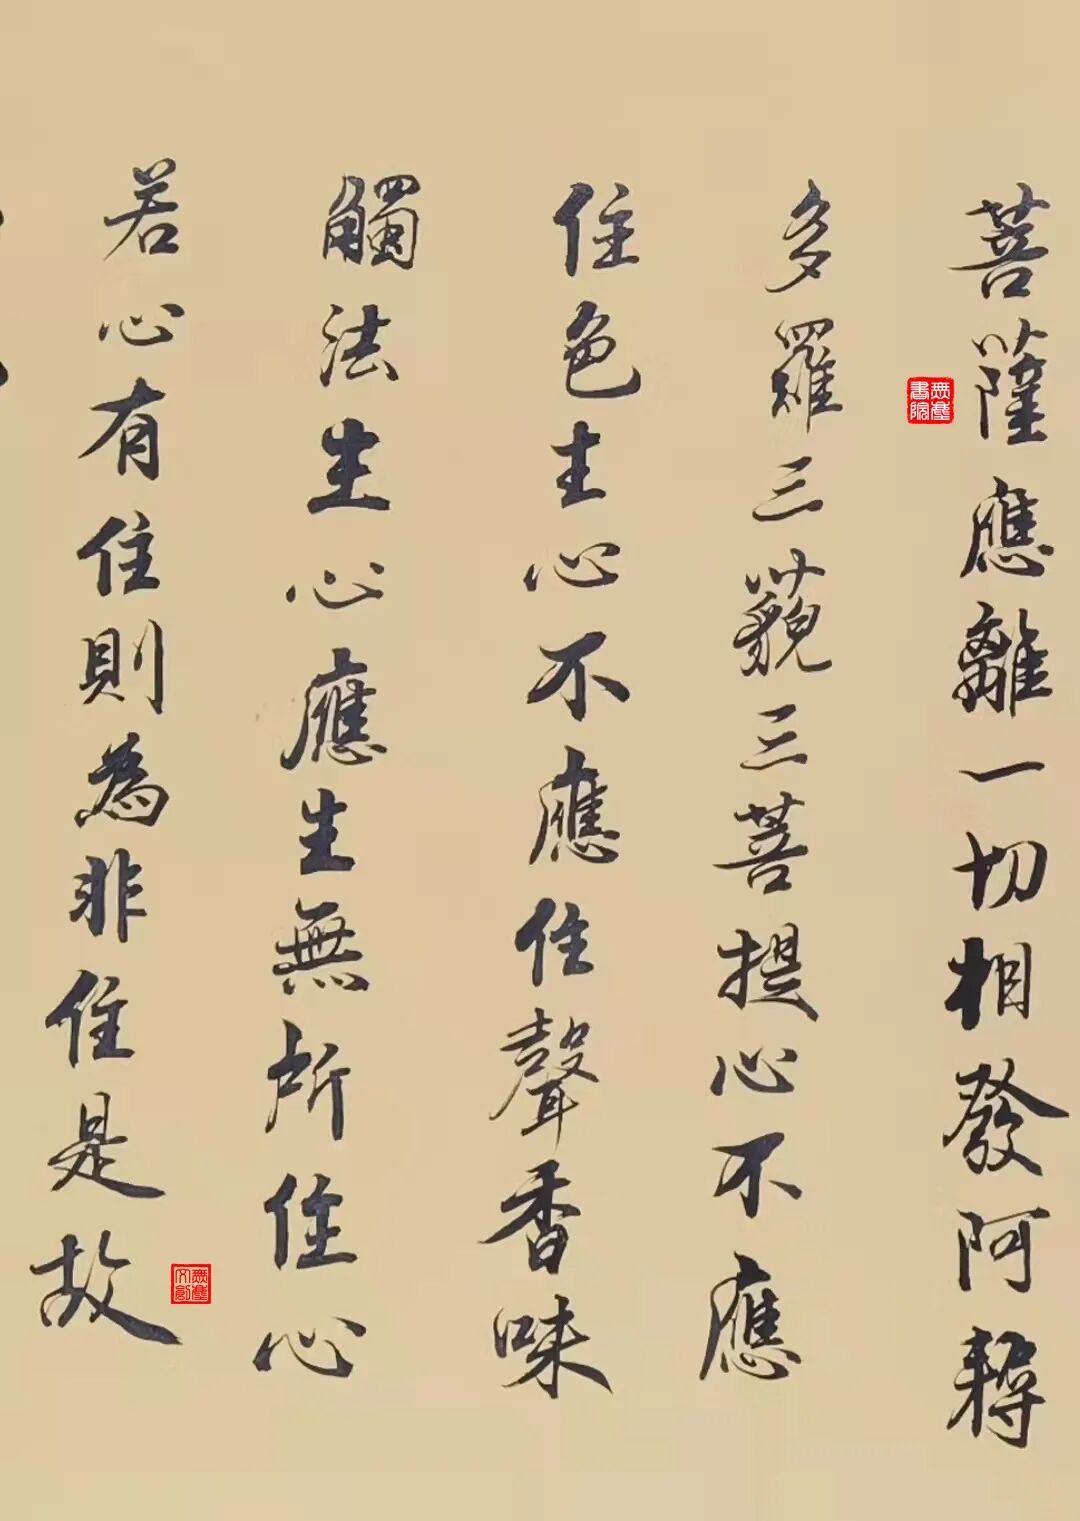 菩薩應離一切相發阿耨
多羅三藐三菩提心不應
住色生心不應住聲香味
觸法生心應生無所住心
若心有住則為非住是故
無塵書院
無塵文創